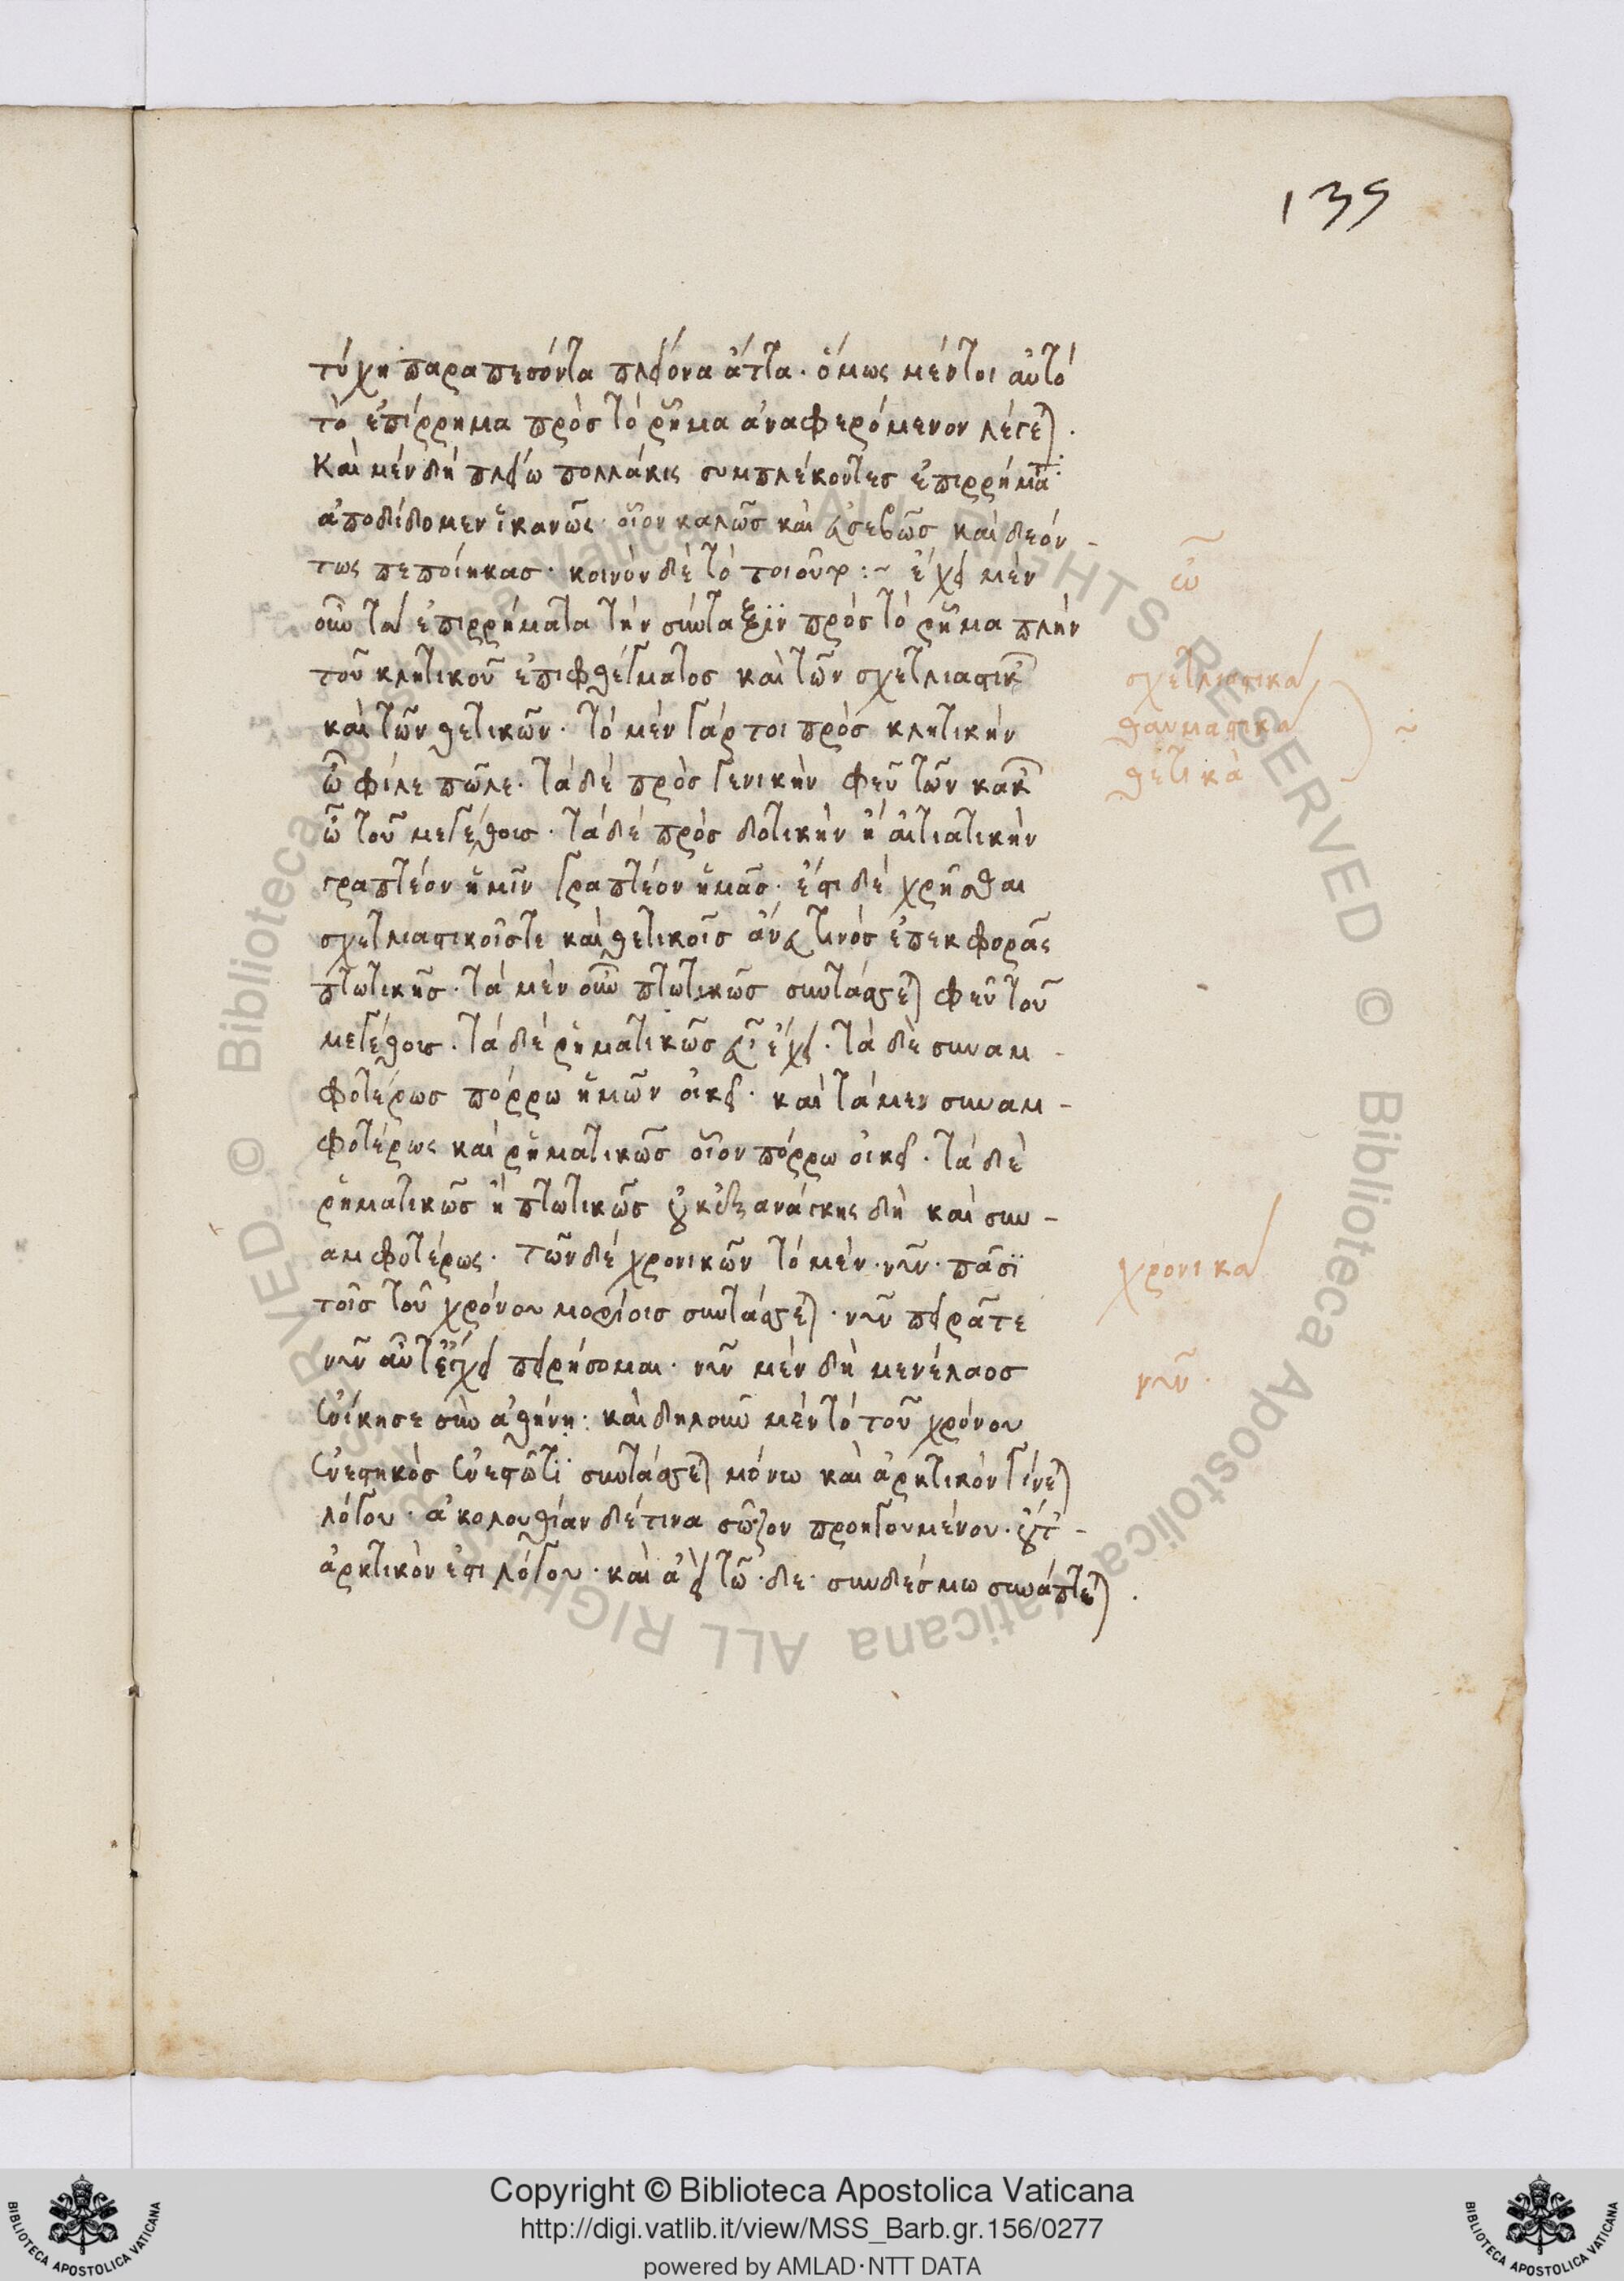 139
τύχη παραπεσόντα πλείονα ἄττα· ὅμως μέντοι αὐτὸ
τὸ ἐπίρρημα πρὸς τὸ ῥῆμα ἀναφερόμενον λέγεται.
Καὶ μὲν δὴ πλείω πολλάκις συμπλέκοντες ἐπιρρήματα
ἀποδίδομεν ἱκανῶς· οἷον καλῶς καὶ εὐσεβῶς καὶ δεόν-
τως πεποίηκας· κοινὸν δὲ τὸ τοιοῦτον :~ ἔχει μὲν
οὖν τὰ ἐπιρρήματα τὴν σύνταξϊν πρὸς τὸ ῥῆμα πλὴν
τοῦ κλητικοῦ ἐπιφθέγματος καὶ τῶν σχετλιαστικῶν
καὶ τῶν θετικῶν· τὸ μὲν γάρ τοι πρὸς κλητικὴν
ὦ φίλε πῶλε· τὰ δὲ πρὸς γενικὴν φεῦ τῶν κακῶν
ὢ τοῦ μεγέθους· τὰ δὲ πρὸς δοτικὴν ἢ αἰτιατικὴν
γραπτέον ἡμῖν γραπτέον ἡμᾶς· ἔστι δὲ χρῆσθαι
σχετλιαστικοῖς τε καὶ θετικοῖς ἄνευ τινὸς ἐπεκφορᾶς
πτωτικῆς· τὰ μὲν οὖν πτωτικῶς συντάσσεται φεῦ τοῦ
μεγέθους· τὰ δὲ ῥηματικῶς εὖ ἔχει· τὰ δὲ συναμ-
φοτέρως πόρρω ἡμῶν οἰκεῖ· καὶ τὰ μεν συναμ-
φοτέρως καὶ ῥηματικῶς οἷον πόρρω οἰκεῖ· τὰ δὲ
ῥηματικῶς ἢ πτωτικῶς οὐκ ἐξανάγκης δὴ καὶ συν-
αμφοτέρως· τῶν δὲ χρονικῶν τὸ μὲν νῦν· πᾶσϊ
τοῖς τοῦ χρόνου μορίοις συντάσσεται· νῦν πειρᾶτε
νῦν πειρήσομαι· νῦν μὲν δὴ μενέλαος
ἐνίκησε σὺν ἀθήνῃ: καὶ δηλοῦν μὲν τὸ τοῦ χρόνου
ἐνεστηκὸς ἐνεστῶτϊ συντάσσεται μόνω καὶ ἀρκτικὸν γίνεται
λόγου· ἀκολουθίαν δέ τινα σῶζον προηγουμένου· οὔτ-
ἀρκτικὸν ἐστι λόγου· καὶ ἀεὶ τῶ δε· συνδέσμω συνάπτεται.
ὦ
σχετλιαστικὰ
θαυμαστικὰ
θετικὰ
χρονικὰ
νῦν·
Copyright © Biblioteca Apostolica Vaticana
http://digi.vatlib.it/view/MSS_Barb.gr.156/0277
powered by AMLAD·NTT DATA